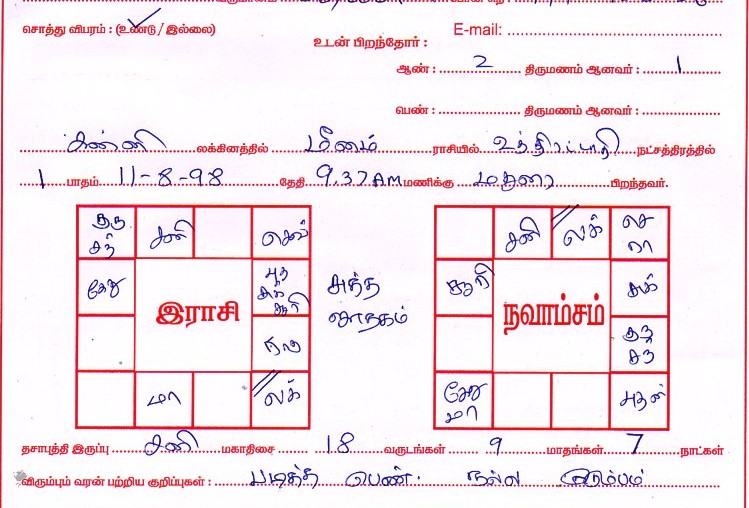 சொத்து விபரம் : (உண்டு / இல்லை)
E-mail:
உடன் பிறந்தோர் :
ஆண் : 2 திருமணம் ஆனவர் : 1
பெண் : திருமணம் ஆனவர் :
கன்னி லக்கினத்தில் மீனம் ராசியில் உத்திரட்டாதி நட்சத்திரத்தில்
1 பாதம் 11-8-98 தேதி 9.37 AM மணிக்கு மதுரை பிறந்தவர்.
குரு சந் சனி செவ்
கேது புத சுக் சூரி
இராசி
ராகு
மா லக்
சுத்த ஜாதகம்
சனி லக் செ ரா
சூரி சுக்
நவாம்சம்
குரு சந்
கேது மா புதன்
தசாபுத்தி இருப்பு சனி மகாதிசை 18 வருடங்கள் 9 மாதங்கள் 7 நாட்கள்
விரும்பும் வரன் பற்றிய குறிப்புகள் : படித்த பெண். நல்ல குடும்பம்